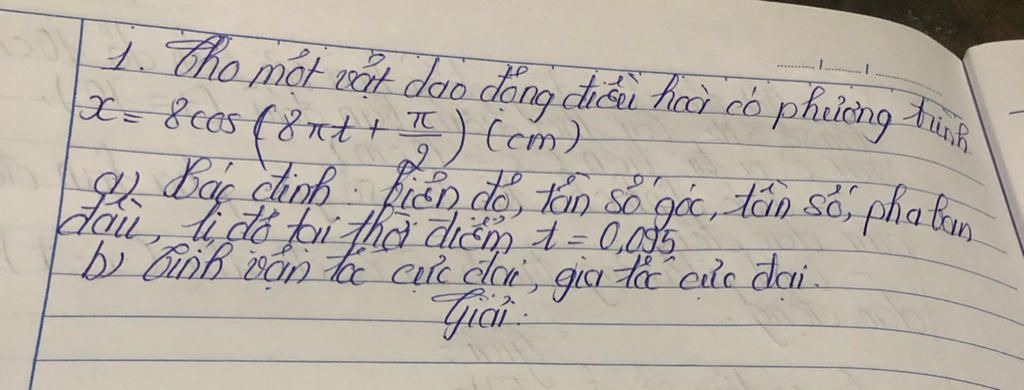 1. Cho một vật dao động điều hoà có phương trình
x = 8cos(8πt + π/2) (cm)
a) Xác định: biên độ, tần số góc, tần số, pha ban
đầu, li độ tại thời điểm t = 0,095
b) Tính vận tốc cực đại, gia tốc cực đại.
Giải: